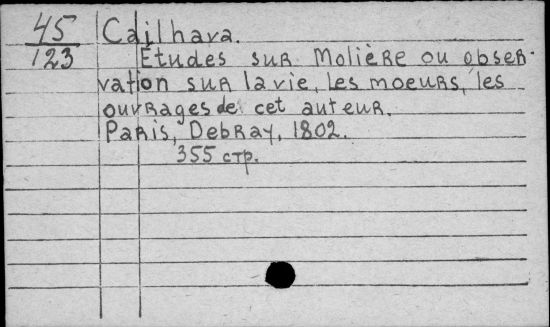 45 Cailhava.
123 Études sur Molière ou obser-
vation sur la vie, les moeurs, les
ouvrages de cet auteur.
Paris, Debray, 1802.
355 стр.